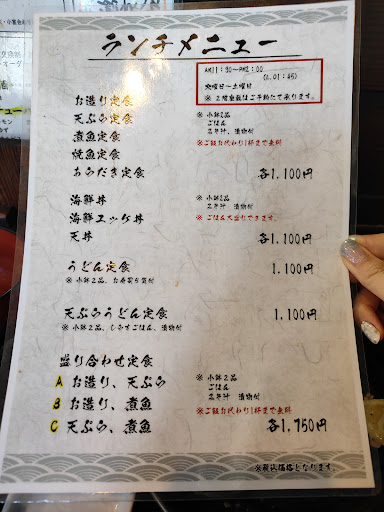 ランチメニュー
AM11:30～PM2:00
(L.O1:45)
火曜日～土曜日
※２階座敷はご予約にて承ります。
お造り定食
天ぷら定食
煮魚定食
焼魚定食
あらだき定食
※ 小鉢２品
ごはん
みそ汁 漬物付
※ご飯お代わり1杯まで無料
各1,100円
海鮮丼
海鮮ユッケ丼
天丼
※ 小鉢２品
みそ汁 漬物付
※ ごはん大盛りできます。
各1,100円
うどん定食
1,100円
※ 小鉢２品、お寿司５貫付
天ぷらうどん定食
1,100円
※ 小鉢２品、しらすごはん、漬物付
盛り合わせ定食
A お造り、天ぷら
B お造り、煮魚
C 天ぷら、煮魚
※ 小鉢２品
ごはん
みそ汁 漬物付
※ご飯お代わり1杯まで無料
各1,750円
※税込価格となります。